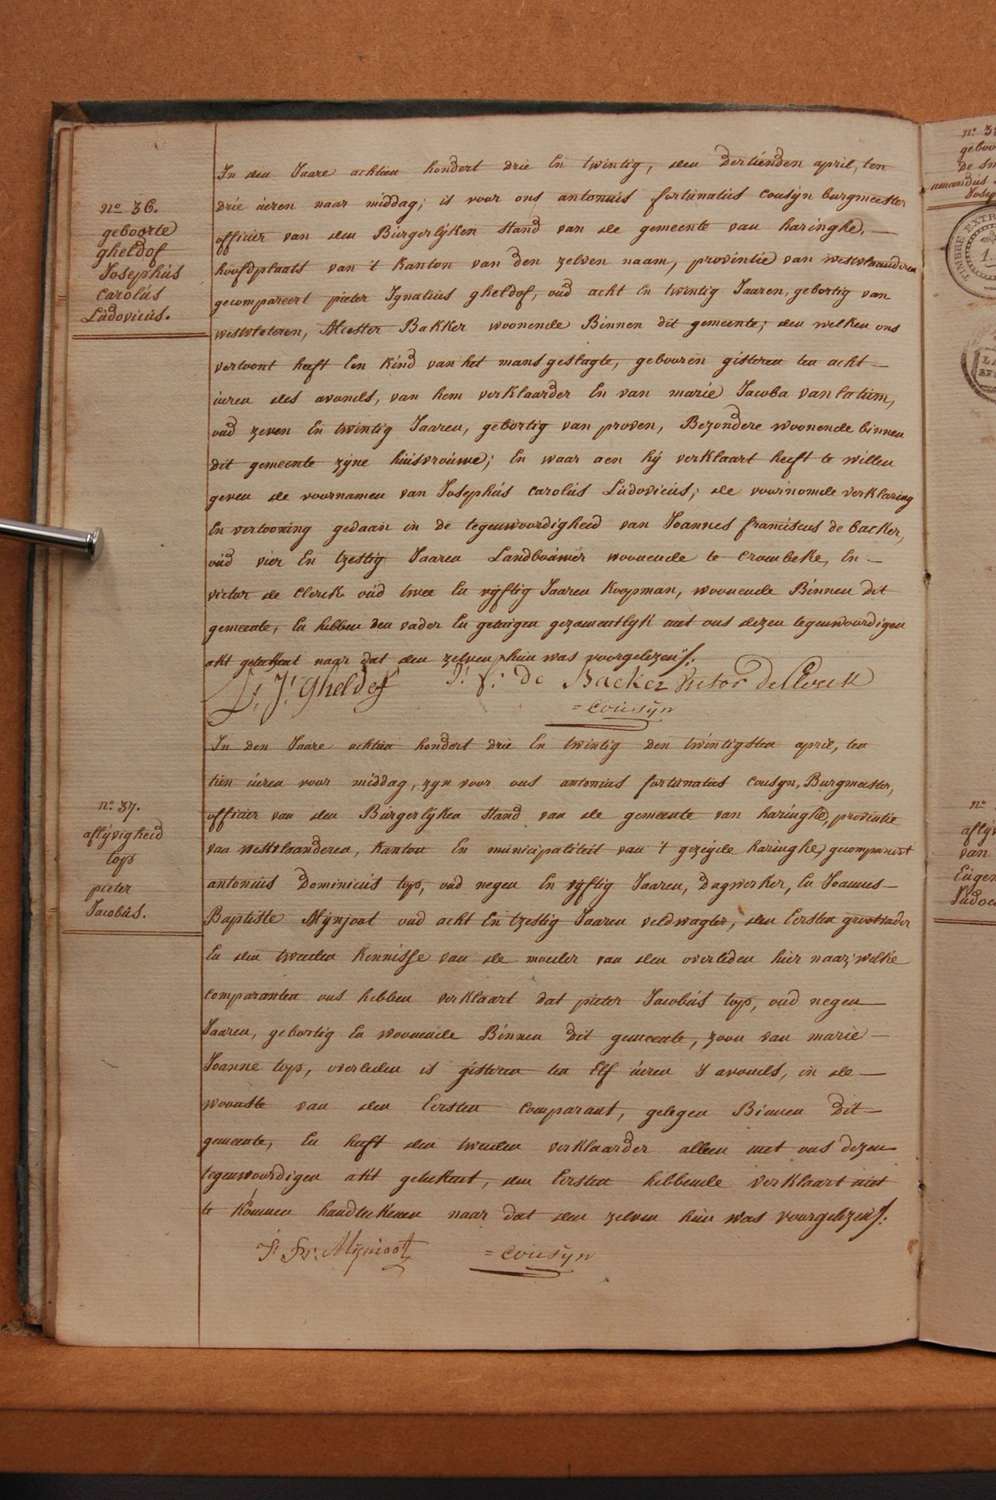 nº 36.
geboorte
gheldof
Josephús
carolús
Lúdovicús.
In den Jaare achtien hondert drie En twintig, den dertienden april, ten
drie úeren naar middag; is voor ons antonius fortunatiús cousÿn burgmeester
officier van den Burgerlÿken Stand van de gemeente van haringhe,
hoofdplaats van 't kanton van den zelven naam, provintie van westvlaanderen
gecompareert pieter Ignatius gheldof, oud acht En twintig Jaaren, gebortig van
westvleteren, Meester Bakker woonende Binnen dit gemeente; den welken ons
vertoont heeft Een kind van het mans geslagte, gebooren gisteren ten acht
úeren des avonds, van hem verklaarder En van marie Jacoba vanlatum,
oud zeven En twintig Jaaren, gebortig van proven, Bezondere woonende binnen
dit gemeente zÿne huisvroúwe; En waar aen hÿ verklaart heeft te willen
geven de voornamen van Josephús carolús Lúdovicús; de voornomde verklaring
En vertooning gedaan in de tegenwoordigheid van Joannes franciscus de backer,
oúd vier En tzestig Jaaren Landboúwer woonende te crombeke, En
victor de Clerck oúd twee En vÿftig Jaaren koopman, woonende Binnen dit
gemeente, En hebben den vader En getuigen gezamentlÿk met ons dezen tegenwoordigen
akt geteekent naar dat den zelven hún was voorgelezen.
P. J. Gheldof J. f. de Backer Victor de Clerck
= cousÿn
nº 37.
aflÿvigheid
tops
pieter
Jacobús.
In den Jaare achtien hondert drie En twintig den twintigsten april, ten
tien úeren voor middag, zÿn voor ons antonius fortunatiús cousÿn, Burgmeester,
officier van den Búrgerlÿken Stand van de gemeente van haringhe, provintie
van westvlaanderen, kanton En municipaliteit van 't gezeyde haringhe, gecompareert
antonius Dominicús tops, oud negen En vÿftig Jaaren, Dagwerker, En Joannes
Baptiste Mÿnjoot oud acht En tzestig Jaaren veldwagter, den Eersten grootvader
En den tweeden kennisse van de moeder van den overleden hier naar, welke
comparanten ons hebben verklaart dat pieter Jacobús tops, oud negen
Jaaren, gebortig En woonende Binnen dit gemeente, zoon van marie
Joanne tops, overleden is gisteren ten Elf úeren 's avonds, in de
woonste van den Eersten comparant, gelegen Binnen dit
gemeente, En heeft den tweeden verklaarder alleen met ons dezen
tegenwoordigen akt geteekent, den Eersten hebbende verklaart niet
te konnen handteekenen naar dat den zelven hún was voorgelezen.
J. Bte. Mÿnjoot = cousÿn
nº